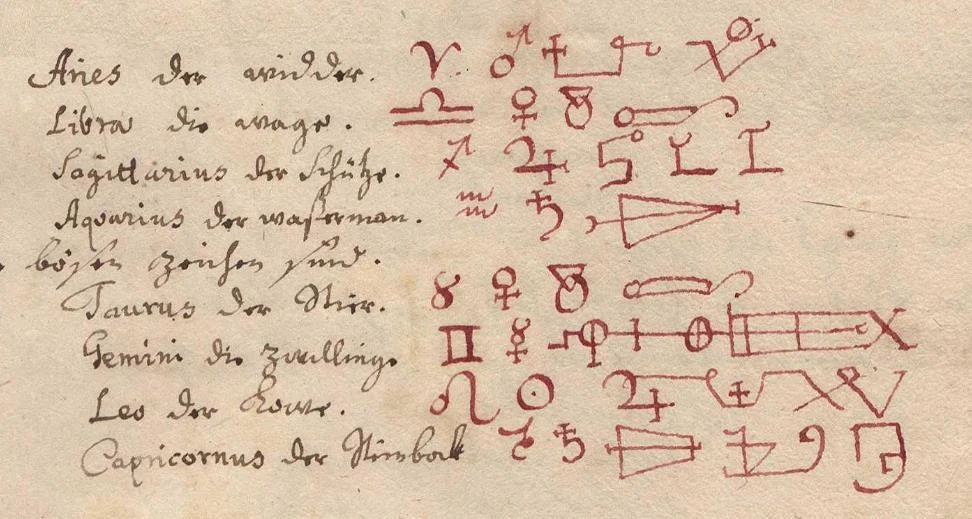 Aries der widder. ♈ ♂
Libra die wage. ♎ ♀
Sagittarius der Schütze. ♐ ♃
Aqvarius der waßerman. ♒ ♄
bösen zeichen sind.
Taurus der Stier. ♉ ♀
Gemini die zwillinge ♊ ☿
Leo der Lowe. ♌ ☉
Capricornus der Steinbock ♑ ♄